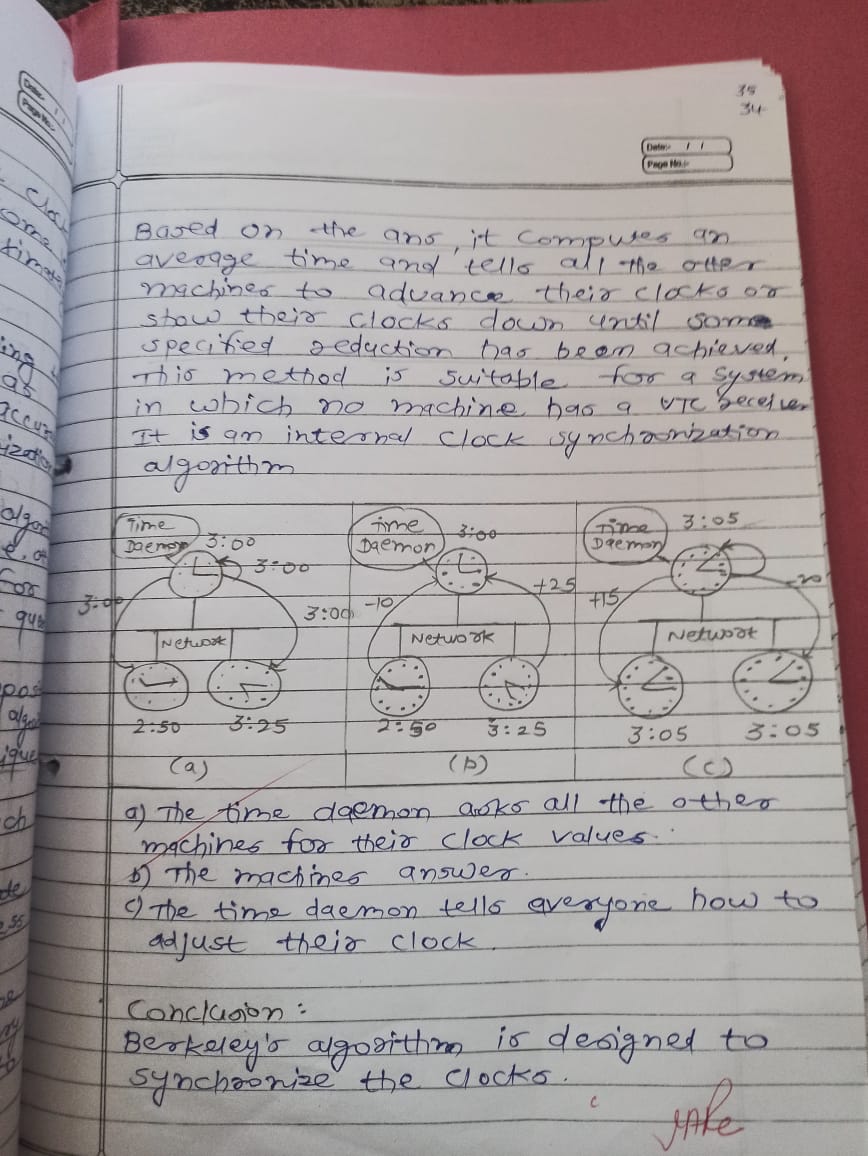 35
34
Date:- / /
Page No.:-
Based on the ans, it computes an
average time and tells all the other
machines to advance their clocks or
show their clocks down until some
specified reduction has been achieved.
This method is suitable for a system
in which no machine has a UTC receiver
It is an internal clock synchronization
algorithm
Time Daemon 3:00 3:00 3:00 3:00
Network
2:50 3:25
(a)
Time Daemon 3:00 -10 +25
Network
2:50 3:25
(b)
Time Daemon 3:05 +15 -20
Network
3:05 3:05
(c)
a) The time daemon asks all the other
machines for their clock values.
b) The machines answer.
c) The time daemon tells everyone how to
adjust their clock.
Conclusion:
Berkeley's algorithm is designed to
synchronize the clocks.